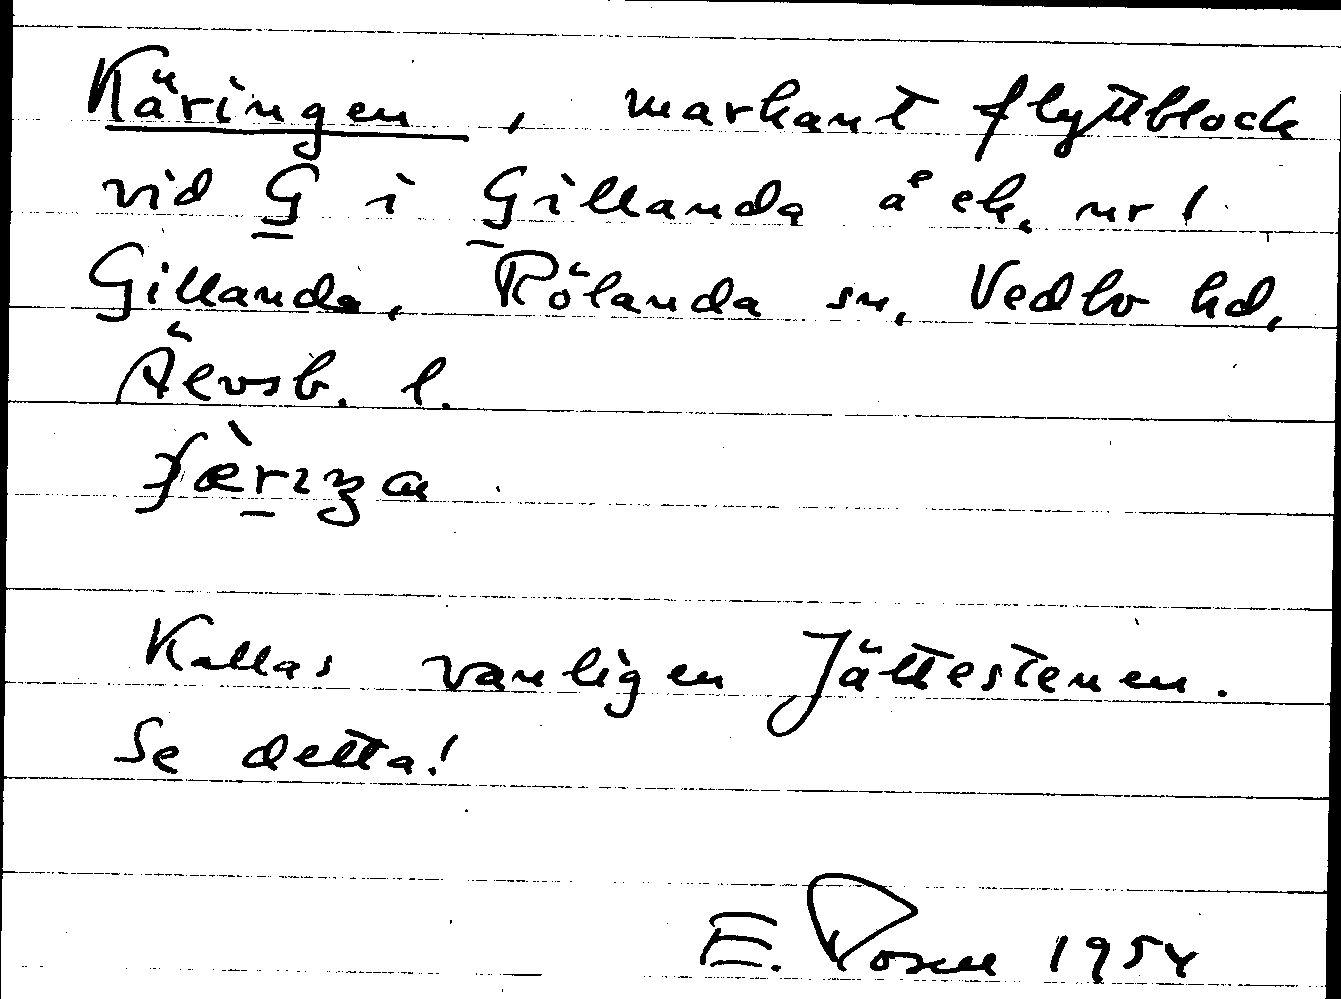 Käringen, markant flyttblock
vid G i Gillanda å ek. nr 1
Gillanda, Rölanda sn, Vedbo hd,
Älvsb. l.
Kallas vanligen Jättestenen.
Se detta!
E. Rosell 1954